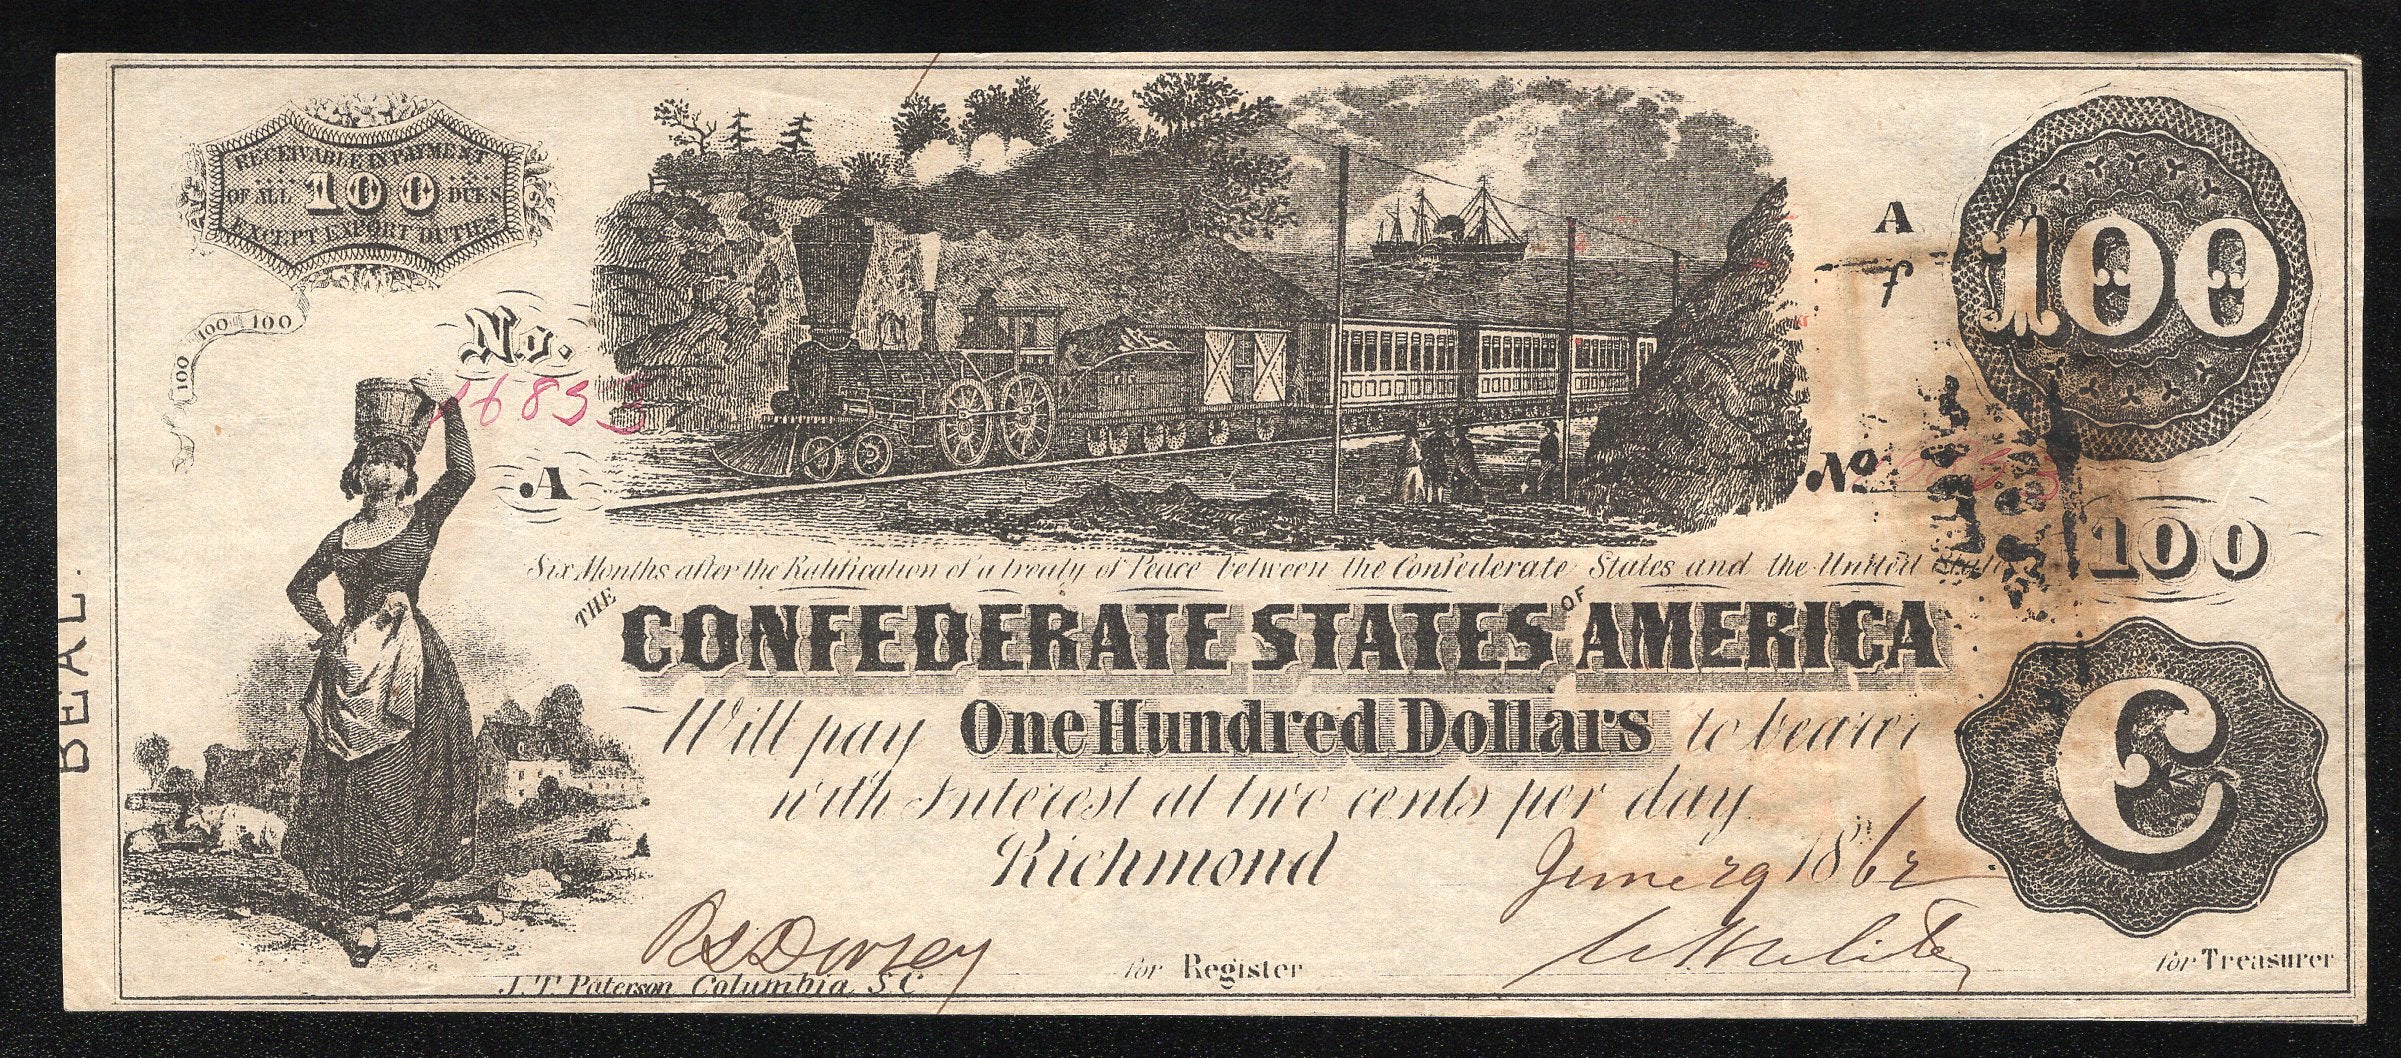 RECEIVABLE IN PAYMENT
OF ALL 100 DUES
EXCEPT EXPORT DUTIES
100 100 100
No.
16833
A
A
f
100
No
100
BEAL.
Six Months after the Ratification of a treaty of Peace between the Confederate States and the United States
THE CONFEDERATE STATES OF AMERICA
Will pay One Hundred Dollars to bearer
with Interest at two cents per day
Richmond June 29 1862
C
for Register
for Treasurer
J. T. Paterson Columbia, S.C.